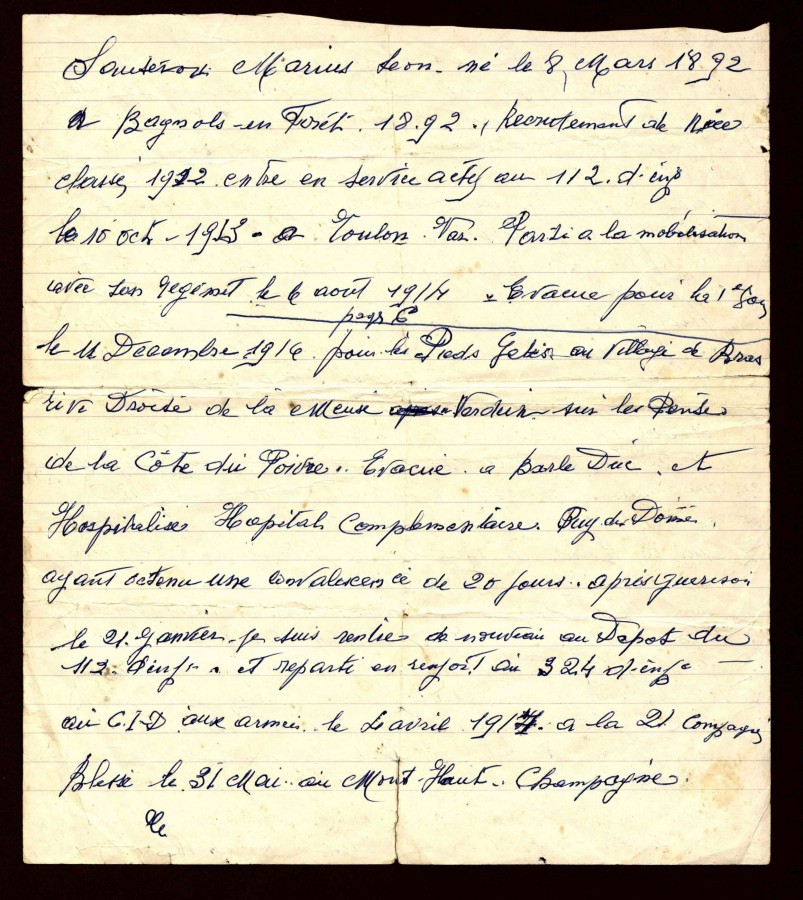 Marius Leon - né le 8 Mars 1892
a Bagnols-en Forêt. 1892., Recrutement de Nice
classe 1912. entre en service actif au 112. d'inf
le 10 oct - 1913 - a Toulon. Var. Parti a la mobilisation
avec son regiment le 6 août 1914 Evacue pour la 1e fois
page 6
le 11 Decembre 1916. pour les Pieds Gelés au Village de Bras
rive Droite de la Meuse Verdun sur les Pentes
de la Côte du Poivre. Evacue a Barle Duc. et
Hospitalise Hopital Complementaire. Puy de Dome.
ayant octenu une convalescence de 20 jours. après guerison
le 21. Janvier je suis rentre de nouveau au Depot du
112. d'infe. et reparti en renfort au 324 d'infe
au C.I.D aux armees le avril 1917. a la 21 Compagnie
Blessé le 31 Mai. au Mont-Haut. Champagne.